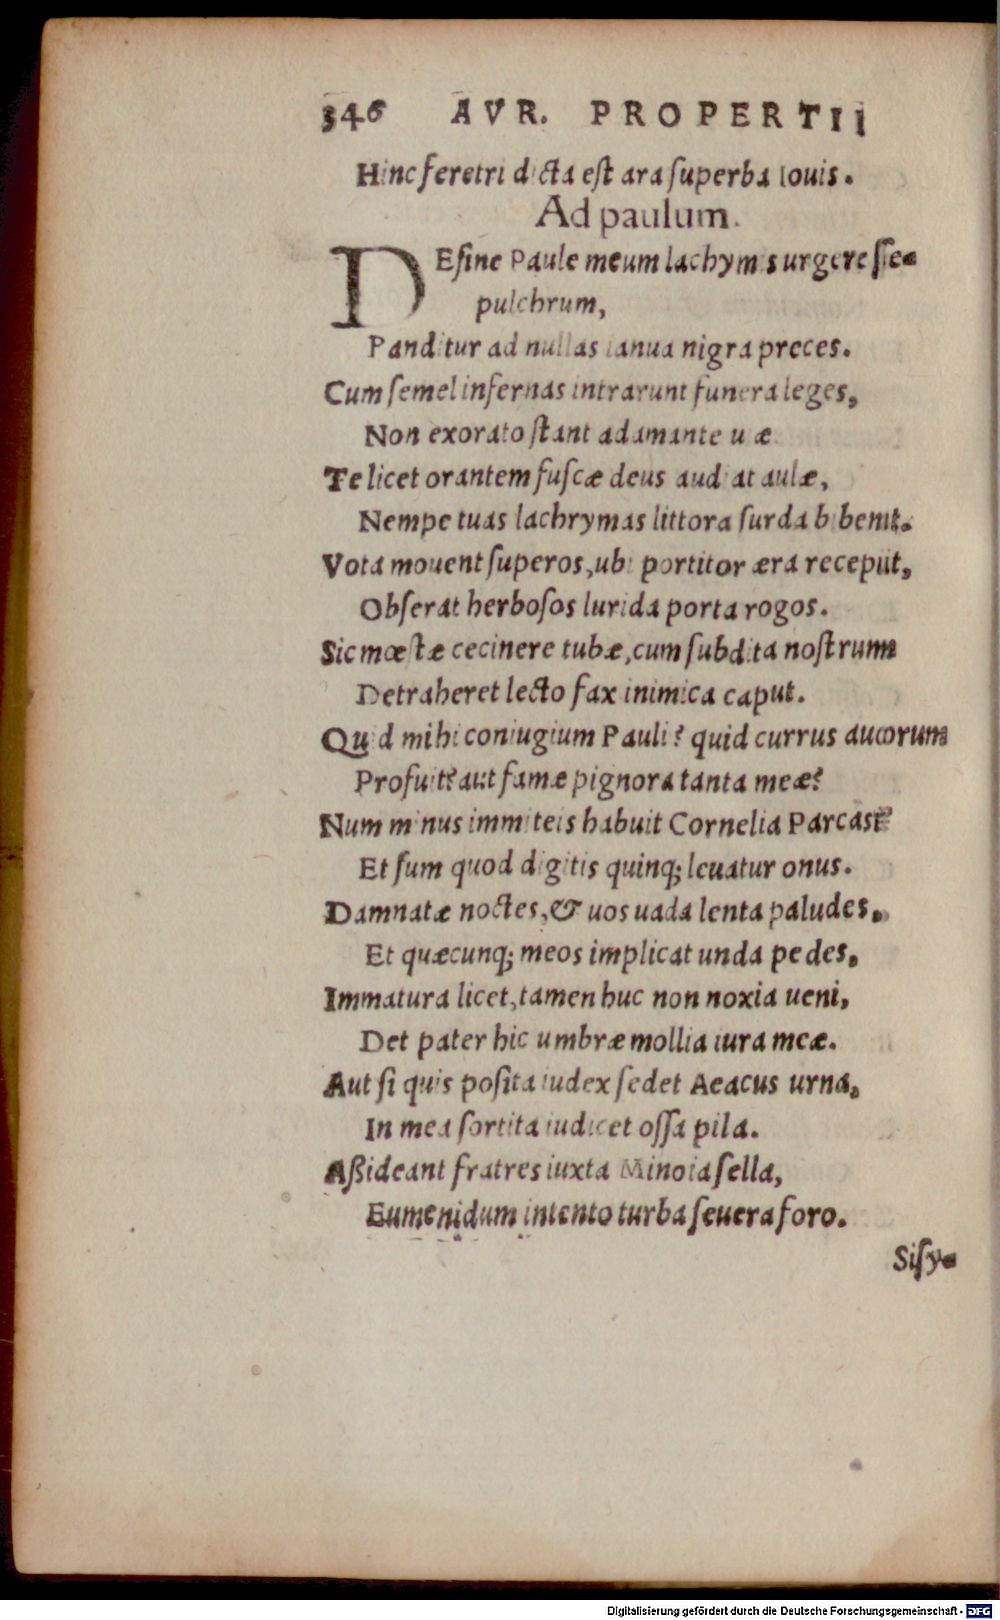 346 AVR. PROPERTII
Hinc feretri dicta est ara superba Iouis.
Ad paulum.
DEsine Paule meum lachymis urgere se-
pulchrum,
Panditur ad nullas ianua nigra preces.
Cum semel infernas intrarunt funera leges,
Non exorato stant adamante uiæ
Te licet orantem fuscæ deus audiat aulæ,
Nempe tuas lachrymas littora surda bibent.
Vota mouent superos, ubi portitor æra recepit,
Obserat herbosos lurida porta rogos.
Sic mœstæ cecinere tubæ, cum subdita nostrum
Detraheret lecto fax inimica caput.
Quid mihi coniugium Pauli? quid currus auorum
Profuit? aut famæ pignora tanta meæ?
Num minus immiteis habuit Cornelia Parcas?
Et sum quod digitis quinq; leuatur onus.
Damnatæ noctes, & uos uada lenta paludes,
Et quæcunq; meos implicat unda pedes,
Immatura licet, tamen huc non noxia ueni,
Det pater hic umbræ mollia iura meæ.
Aut si quis posita iudex sedet Aeacus urna,
In mea sortita iudicet ossa pila.
Aßideant fratres iuxta Minoia sella,
Eumenidum intento turba seuera foro.
Sisy-
Digitalisierung gefördert durch die Deutsche Forschungsgemeinschaft - DFG